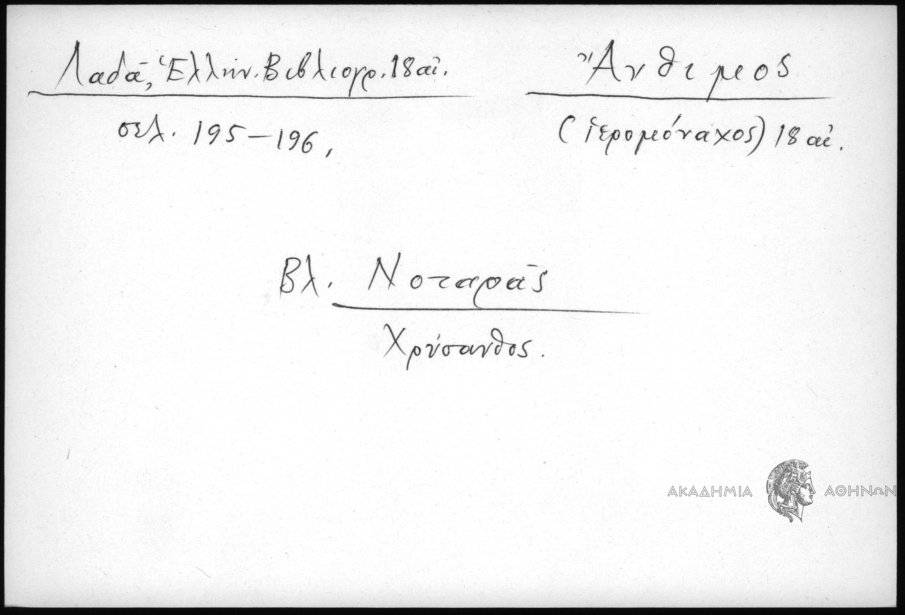 Λαδᾶ, Ἑλλην. Βιβλιογρ. 18 αἰ.
σελ. 195-196,
Ἄνθιμος
(ἱερομόναχος) 18 αἰ.
Βλ. Νοταρᾶς
Χρύσανθος.
ΑΚΑΔΗΜΙΑ ΑΘΗΝΩΝ